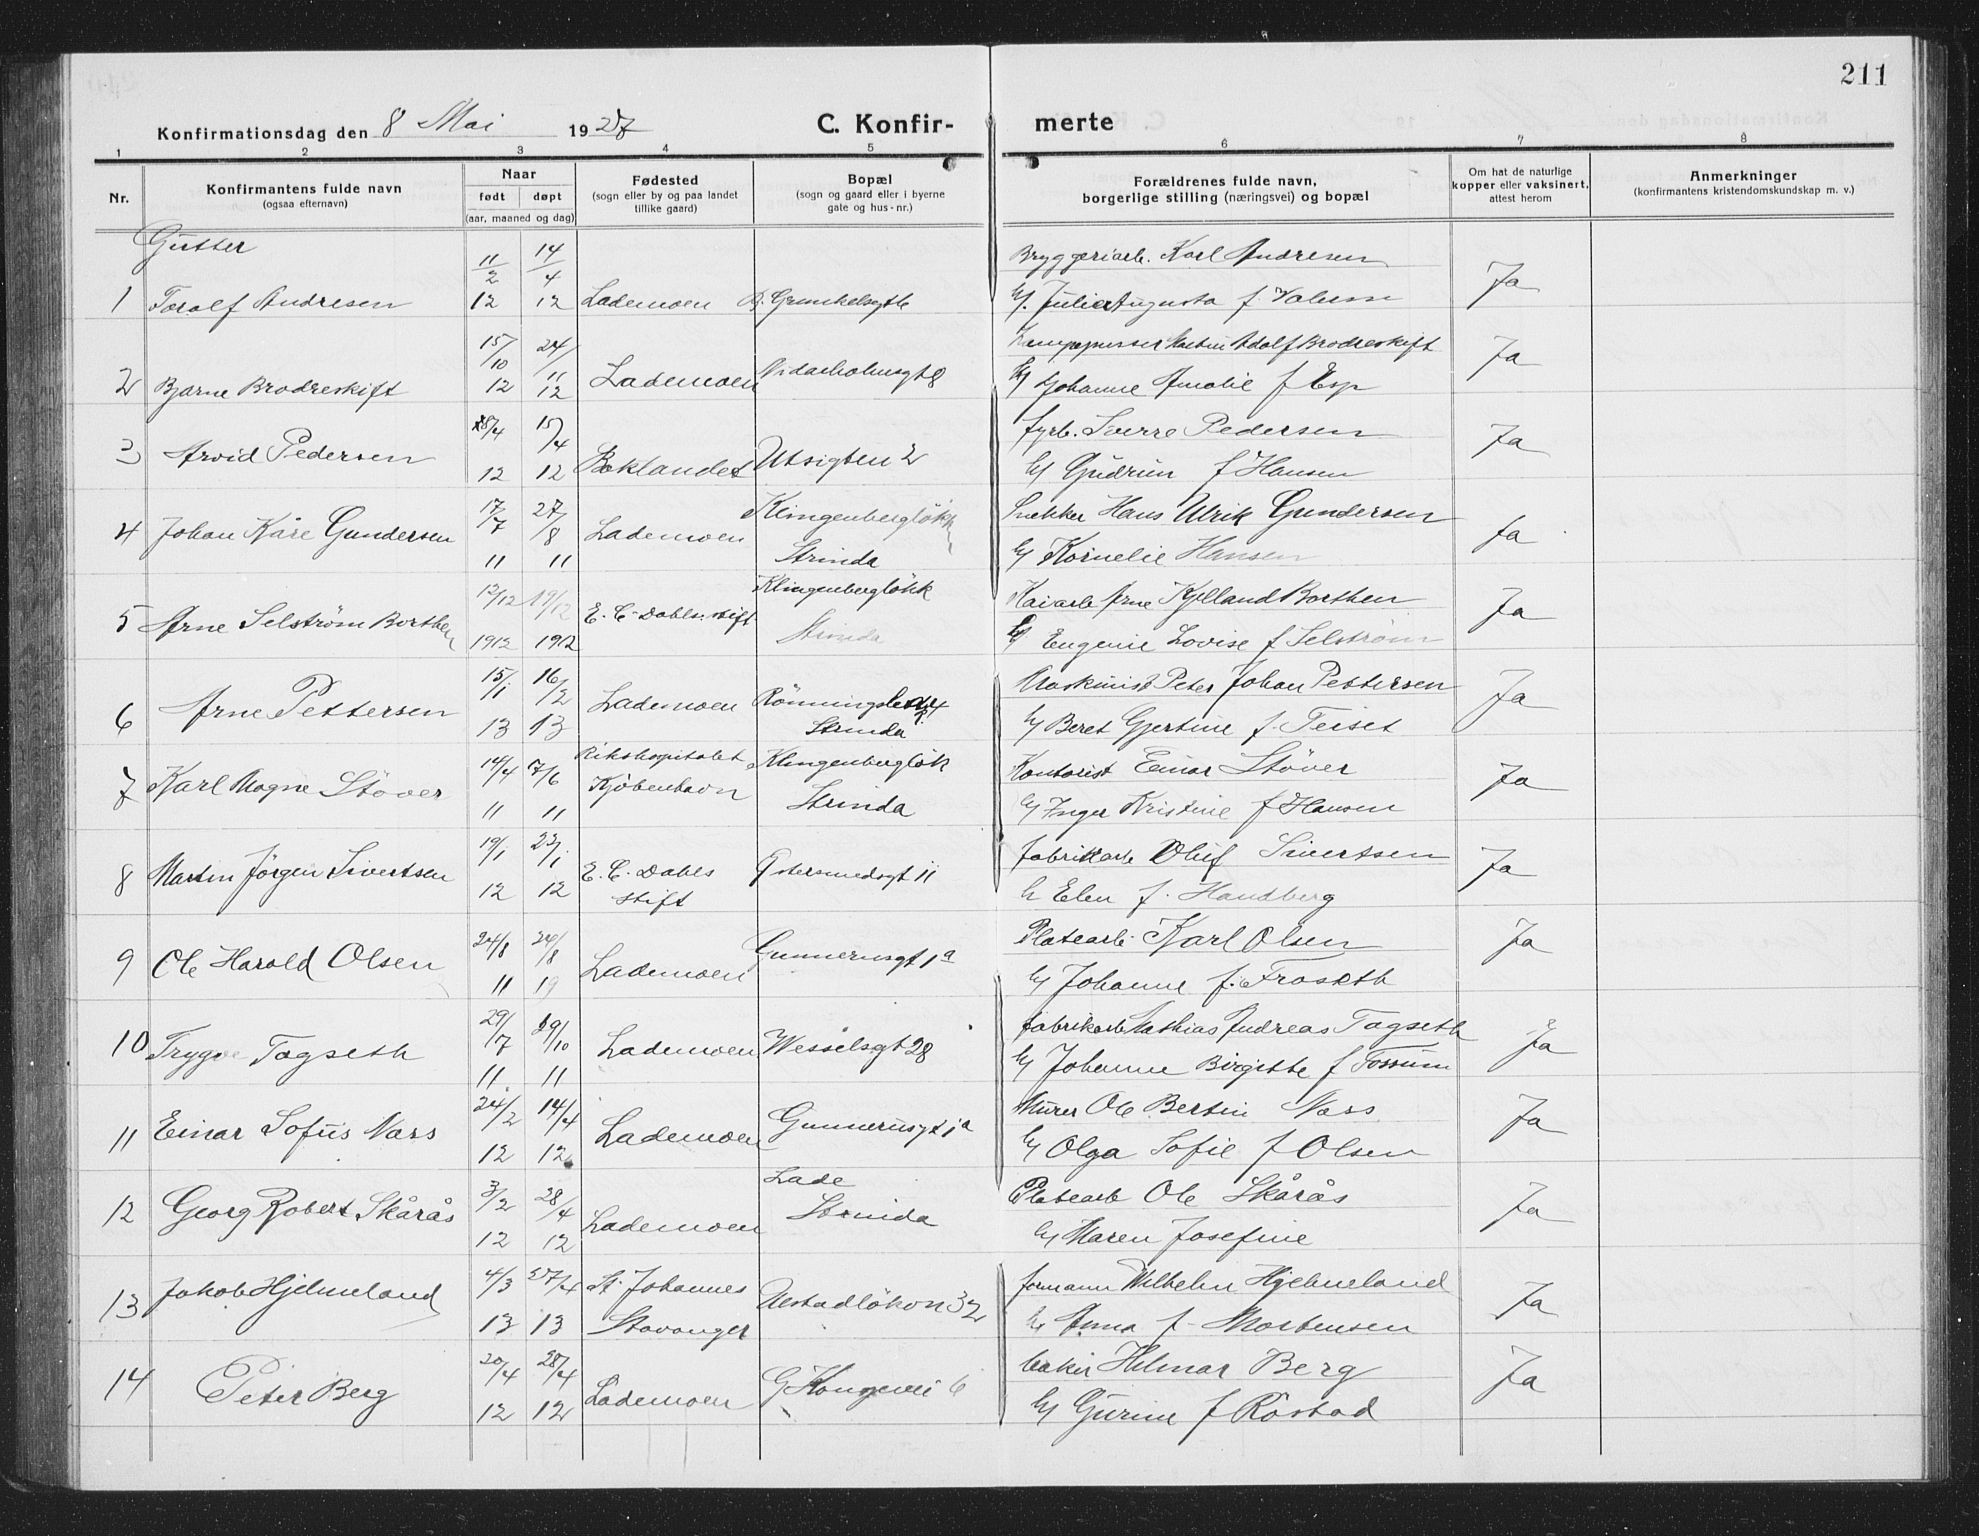 211
Konfirmationsdag den 8 Mai 1927 C. Konfir- merte
1 2 3 4 5 6 7 8
Nr. Konfirmantens fulde navn (ogsaa efternavn) Naar født døpt (aar, maaned og dag) Fødested (sogn eller by og paa landet tillike gaard) Bopæl (sogn og gaard eller i byerne gate og hus-nr.) Forældrenes fulde navn, borgerlige stilling (næringsvei) og bopæl Om hat de naturlige kopper eller vaksinert, attest herom Anmerkninger (konfirmantens kristendomskundskap m. v.)
Gutter
11/2 14/4 Bryggeriarb. Karl Andresen Ja
1 Toralf Andresen 12 12 Lademoen Julie Augusta f.
15/10 24/11 Martin Adolf Brodreskift Ja
2 Bjarne Brodreskift 12 12 Lademoen Nidarholmsgt 8 Johanne Amalie f Esp
28/4 15/4 fyrb. Sverre Pedersen Ja
3 Arvid Pedersen 12 12 Baklandet Utsigten 2 Gudrun f Hansen
17/7 27/8 Klingenbergløkk Snekker Hans Ulrik Gundersen Ja
4 Johan Kåre Gundersen 11 11 Lademoen Strinda Kornelie Hansen
12/12 19/12 Klingenbergløkk Kaiarb Arne Kjelland Borthen Ja
5 Arne Selström Borthen 1912 1912 E. C. Dahls stift Strinda Eugenie Lovise f Selström
15/1 16/2 Maskinist Peter Johan Pettersen Ja
6 Arne Pettersen 13 13 Lademoen Strinda Beret Gjertine f. Teiset
14/4 7/6 Rikshospitalet Klingenbergløk Kontorist Einar Støver Ja
7 Karl Magne Støver 11 11 Kjøbenhavn Strinda Inger Kristine f Hansen
19/1 23/1 fabrikkarb Oluf Sivertsen Ja
8 Martin Jörgen Sivertsen 12 12 E. C. Dahls stift Østersundsgt 11 Elen f. Handberg
24/8 24/8 Platearb. Karl Olsen Ja
9 Ole Harald Olsen 11 19 Lademoen Gunnerusgt 1a Johanne f. Froseth
29/7 29/10 fabrikarb Mathias Andreas Tagseth Ja
10 Trygve Tagseth 11 11 Lademoen Wesselsgt 28 Johanne Birgitte f Fossum
24/2 14/4 Murer Ole Bertin Næss Ja
11 Einar Sofus Næss 12 12 Lademoen Gunnerusgt 1a Olga Sofie f Olsen
3/2 28/4 Lade Platearb Ole Skårås Ja
12 Georg Robert Skårås 12 12 Lademoen Strinda Maren Josefine
4/3 27/4 St. Johannes formann Wilhelm Hjelmeland Ja
13 Jakob Hjelmeland 13 13 Stavanger 32 Anna f. Mortensen
20/4 28/4 Hilmar Berg Ja
14 Peter Berg 12 12 Lademoen G Kongevei 6 Gurine f Röstad